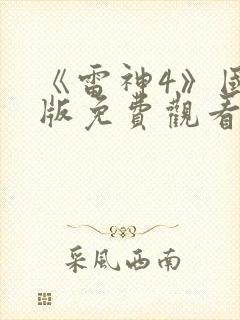 《雷神4》国
版免費觀看
采风西南